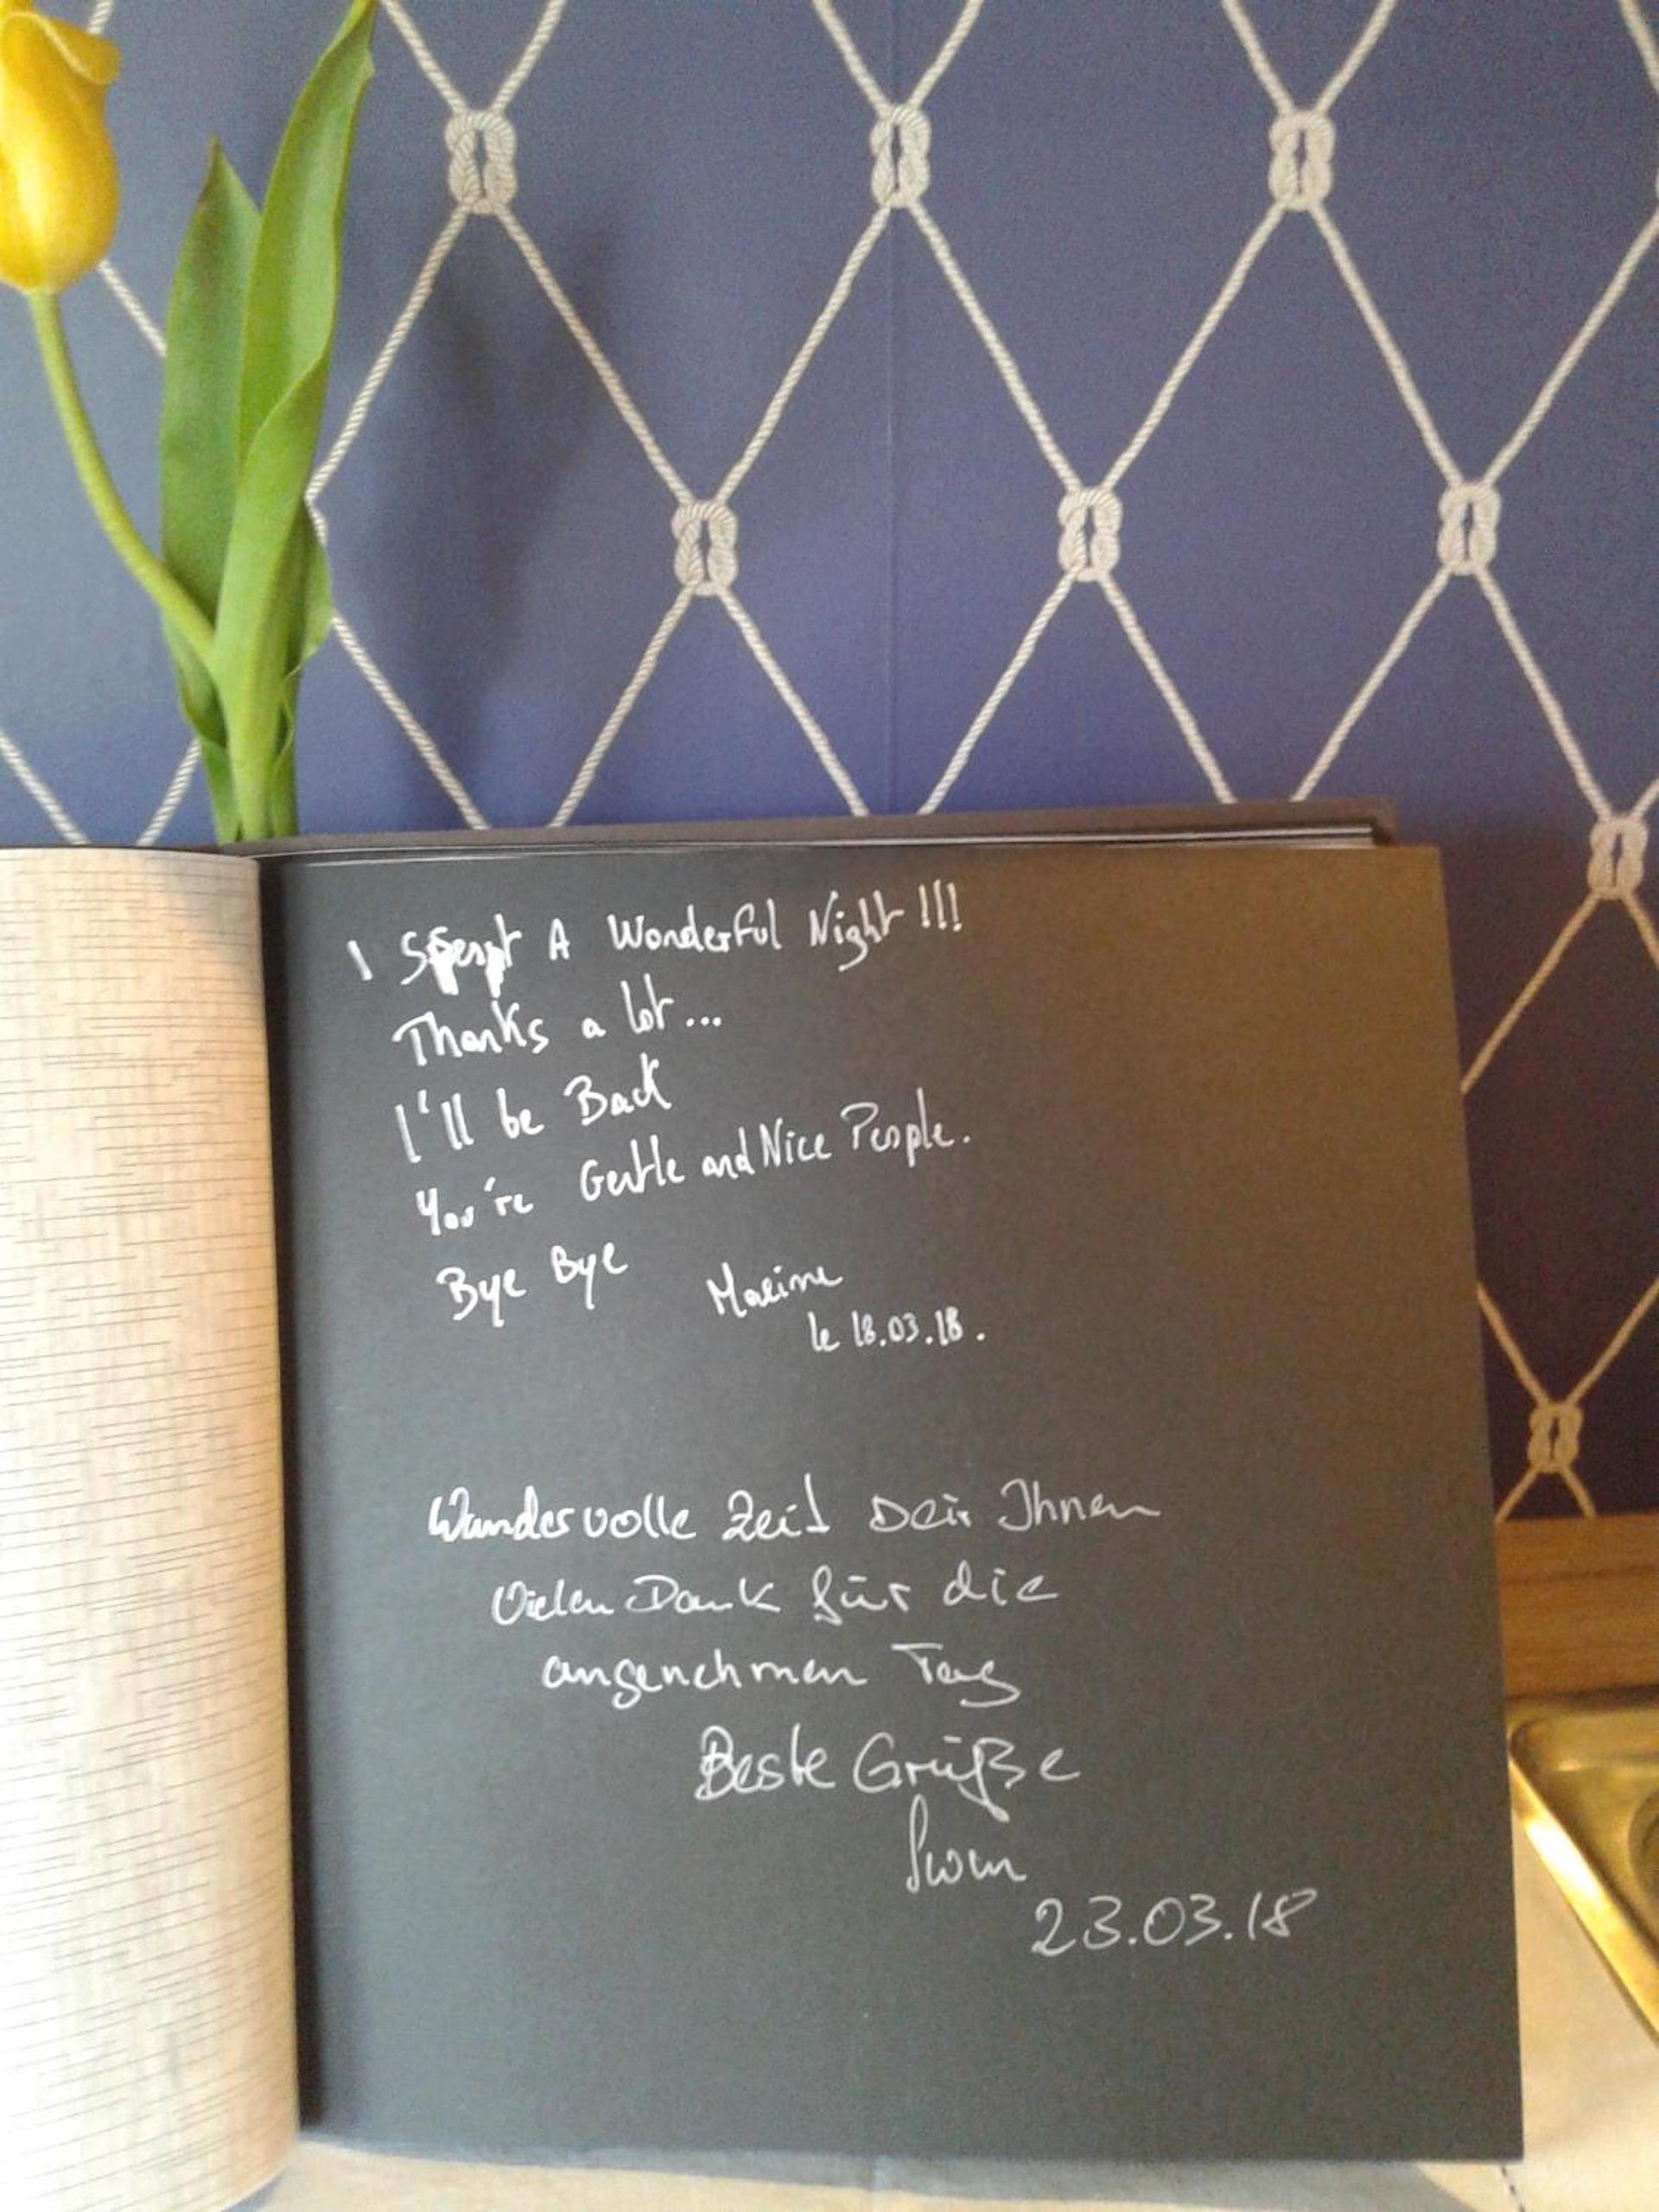 I Spent A Wonderful Night !!!
Thanks a lot...
I'll be Back
You're Gentle and Nice People.
Bye Bye Maxime
le 18.03.18.
Wundervolle Zeit bei Ihnen
Vielen Dank für die
angenehmen Tag
Beste Grüße
23.03.18